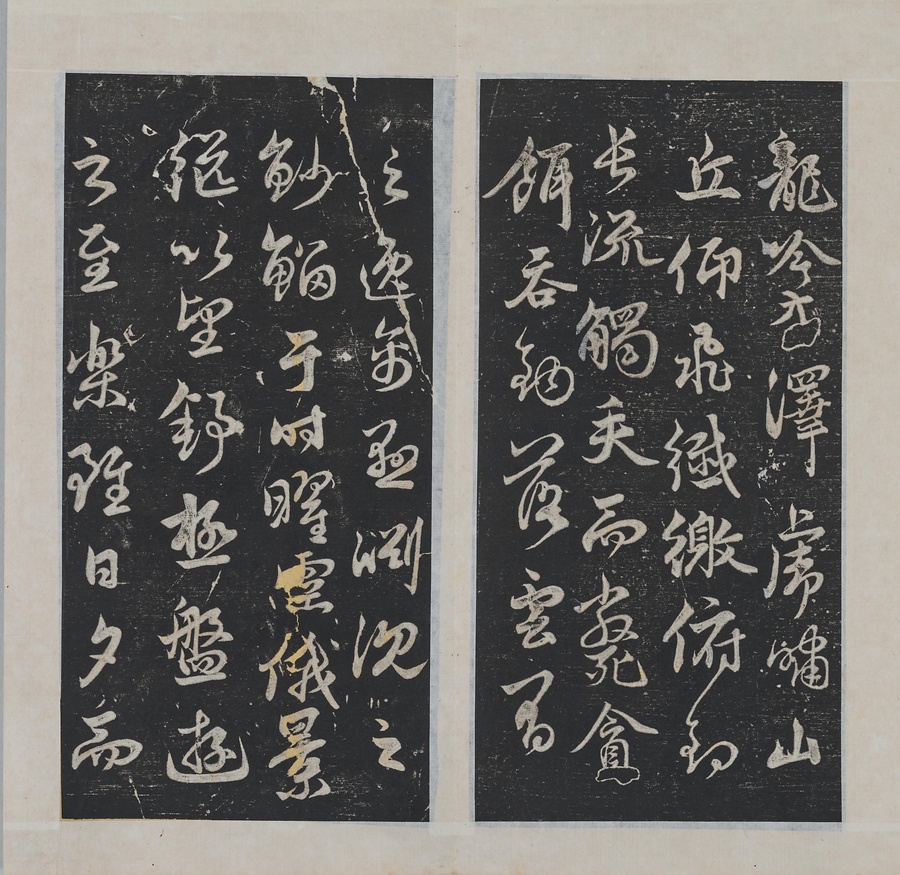 龍吟方澤虎嘯山
丘仰飛纖繳俯釣
長流觸矢而斃貪
餌吞鉤落雲間
之逸禽懸淵沉之
魦鰡于時曜靈俄景
繼以望舒極盤遊
之至樂雖日夕而